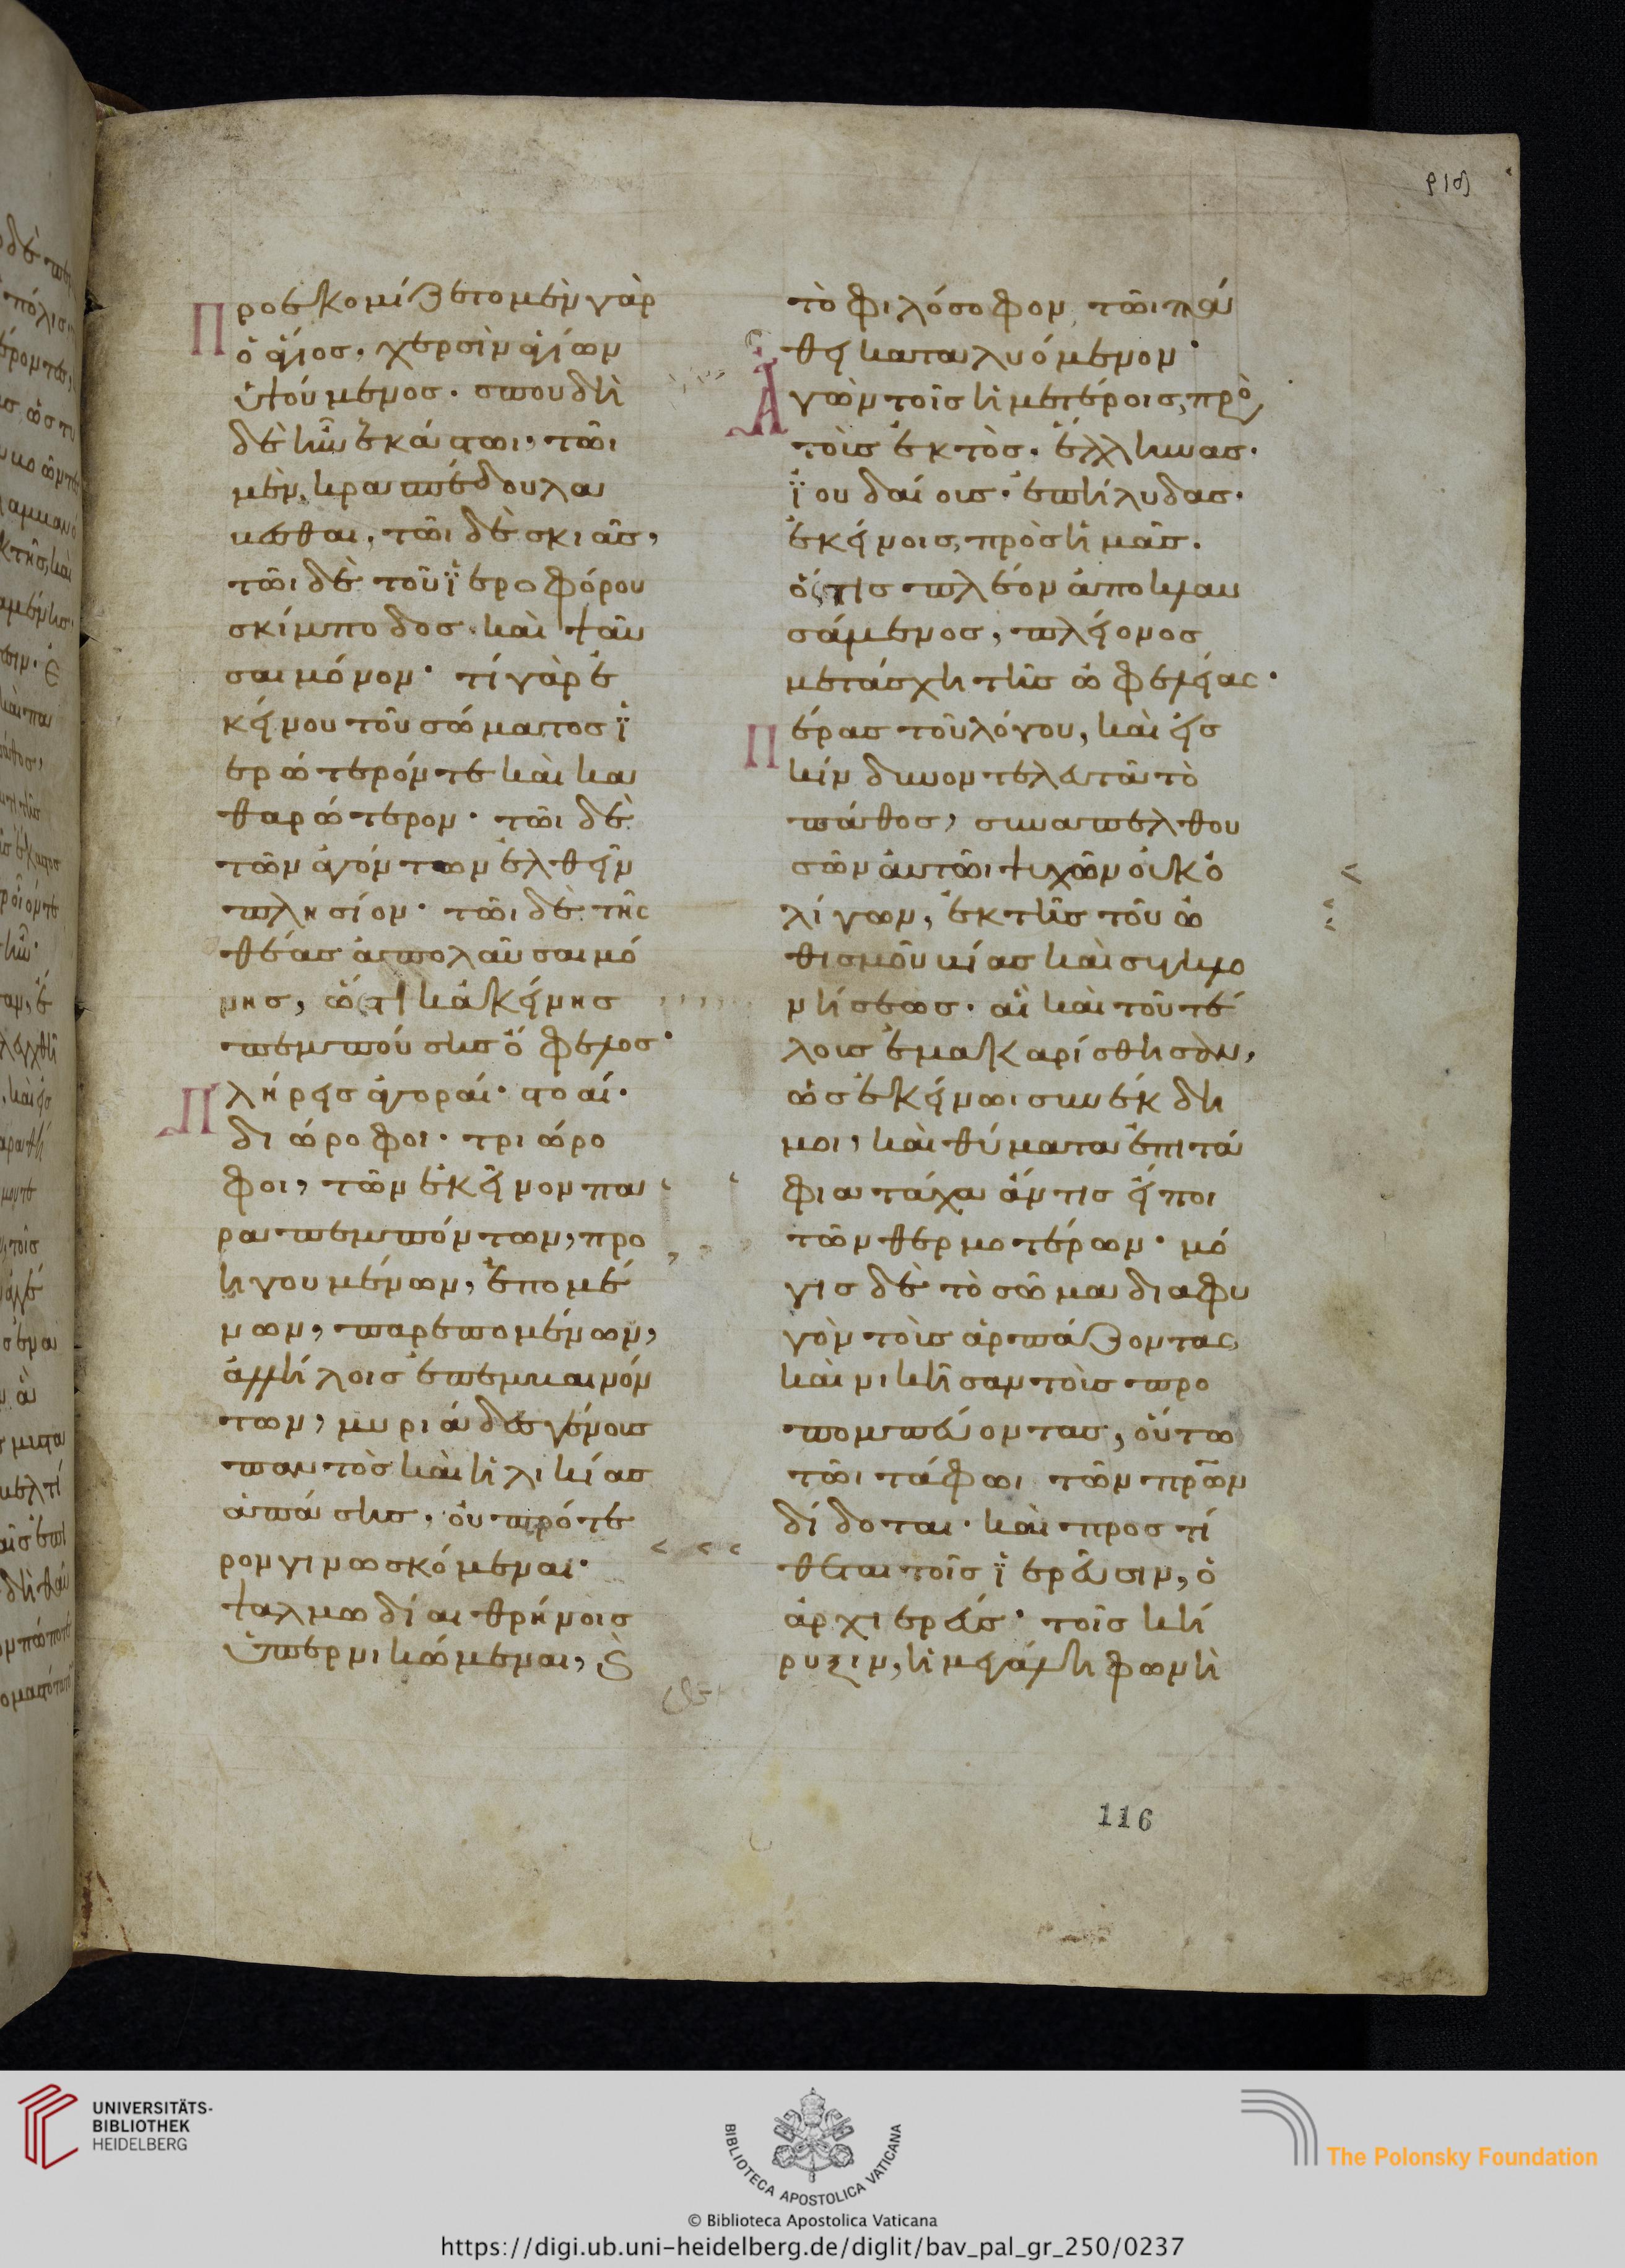 Προεκομίζετο μὲν γὰρ
ὁ ἅγιος, χερσὶν ἁγίων
ὑψούμενος. σπουδὴ
δὲ ἦν ἑκάστωι, τῶι
μὲν, κρασπέδου λα
βέσθαι, τῶι δὲ σκιᾶς,
τῶι δὲ τοῦ ϊεροφόρου
σκίμποδος καὶ ψαῦ
σαι μόνον· τί γὰρ ἐ
κείνου τοῦ σώματος ϊ
ερώτερόν τε καὶ κα
θαρώτερον· τῶι δὲ
τῶν ἀγόντων ἐλθεῖν
πλησίον· τῶι δὲ τῆς
θέας ἀπολαῦσαι μό
νης, ὥς τι κἀκείνης
πεμπούσης ὄφελος·
Πλήρεις ἀγοραί· στοαί·
διώροφοι· τριώρο
φοι, τῶν ἐκεῖνον πα
ραπεμπόντων, προ
ηγουμένων, ἑπομέ
νων, παρεπομένων,
ἀλλήλοις ἐπεμβαινόν
των, μυριάδες γένους
παντὸς καὶ ἡλικίας
ἁπάσης, οὐ πρότε
ρον γινωσκόμεναι·
ψαλμωδίαι θρήνοις
ὑπερνικώμεναι, ϗ
ριϛ
τὸ φιλόσοφον τῶι πά
θει καταλυόμενον·
Ἀγὼν τοῖς ἡμετέροις, πρὸ
τοὺς ἐκτὸς. ἕλληνας.
ϊουδαίους. ἐπήλυδας.
ἐκείνοις, πρὸς ἡμᾶς.
ὅστις πλέον ἀποκλαυ
σάμενος, πλείονος
μετάσχη τῆς ὠφελείας·
Πέρας τοῦ λόγου, καὶ εἰς
κίνδυνον τελευτᾶ τὸ
πάθος, συναπελθου
σῶν αὐτῶι ψυχῶν οὐκ ὀ
λίγων, ἐκ τῆς τοῦ ὠ
θισμοῦ βίας καὶ συγκλο
νήσεως. αἳ καὶ τοῦ τέ
λους ἐμακαρίσθησαν,
ὡς ἐκείνωι συνέκδη
μοι, καὶ θύματα ἐπιτά
φια τάχα ἄν τις εἴποι
τῶν θερμοτέρων· μό
γις δὲ τὸ σῶμα διαφυ
γὸν τοὺς ἁρπάζοντας
καὶ νικῆσαν τοὺς προ
πομπεύοντας, οὕτω
τῶι τάφωι τῶν πρων
δίδοται· καὶ προστί
θεται τοῖς ϊερεῦσιν, ὁ
ἀρχιερεύς· τοῖς κή
ρυξιν, ἡ μεγάλη φωνὴ
116
UNIVERSITÄTS-
BIBLIOTHEK
HEIDELBERG
BIBLIOTECA APOSTOLICA VATICANA
The Polonsky Foundation
© Biblioteca Apostolica Vaticana
https://digi.ub.uni-heidelberg.de/diglit/bav_pal_gr_250/0237